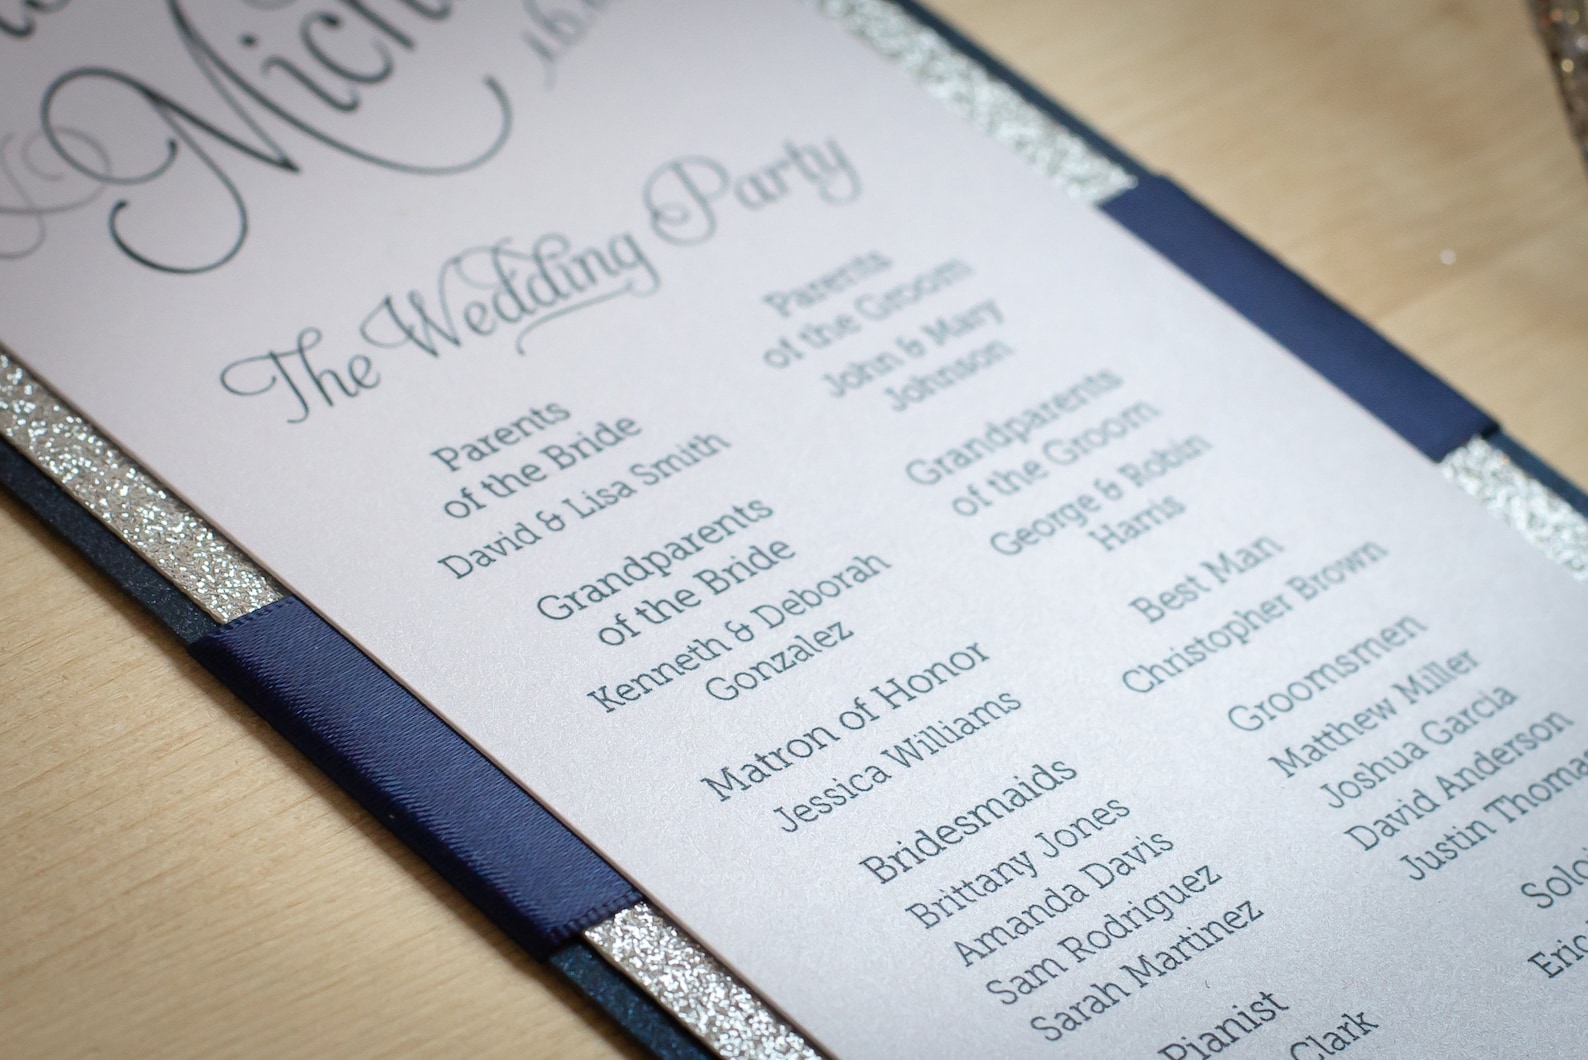 &
The Wedding Party
Parents
of the Bride
David & Lisa Smith
Grandparents
of the Bride
Kenneth & Deborah
Gonzalez
Matron of Honor
Jessica Williams
Bridesmaids
Brittany Jones
Amanda Davis
Sam Rodriguez
Sarah Martinez
Pianist
Clark
Parents
of the Groom
John & Mary
Johnson
Grandparents
of the Groom
George & Robin
Harris
Best Man
Christopher Brown
Groomsmen
Matthew Miller
Joshua Garcia
David Anderson
Justin Thomas